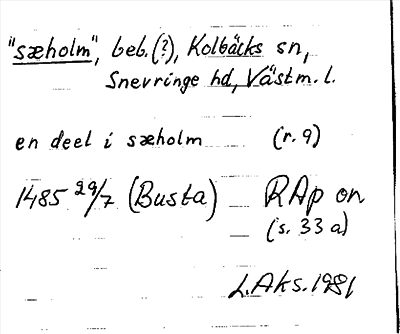 "sæholm", beb.(?), Kolbäcks sn,
Snevringe hd, Västm. l.
en deel i sæholm (r. 9)
1485 29/7 (Busta) RAp on
(s. 33 a)
L.Aks. 1981